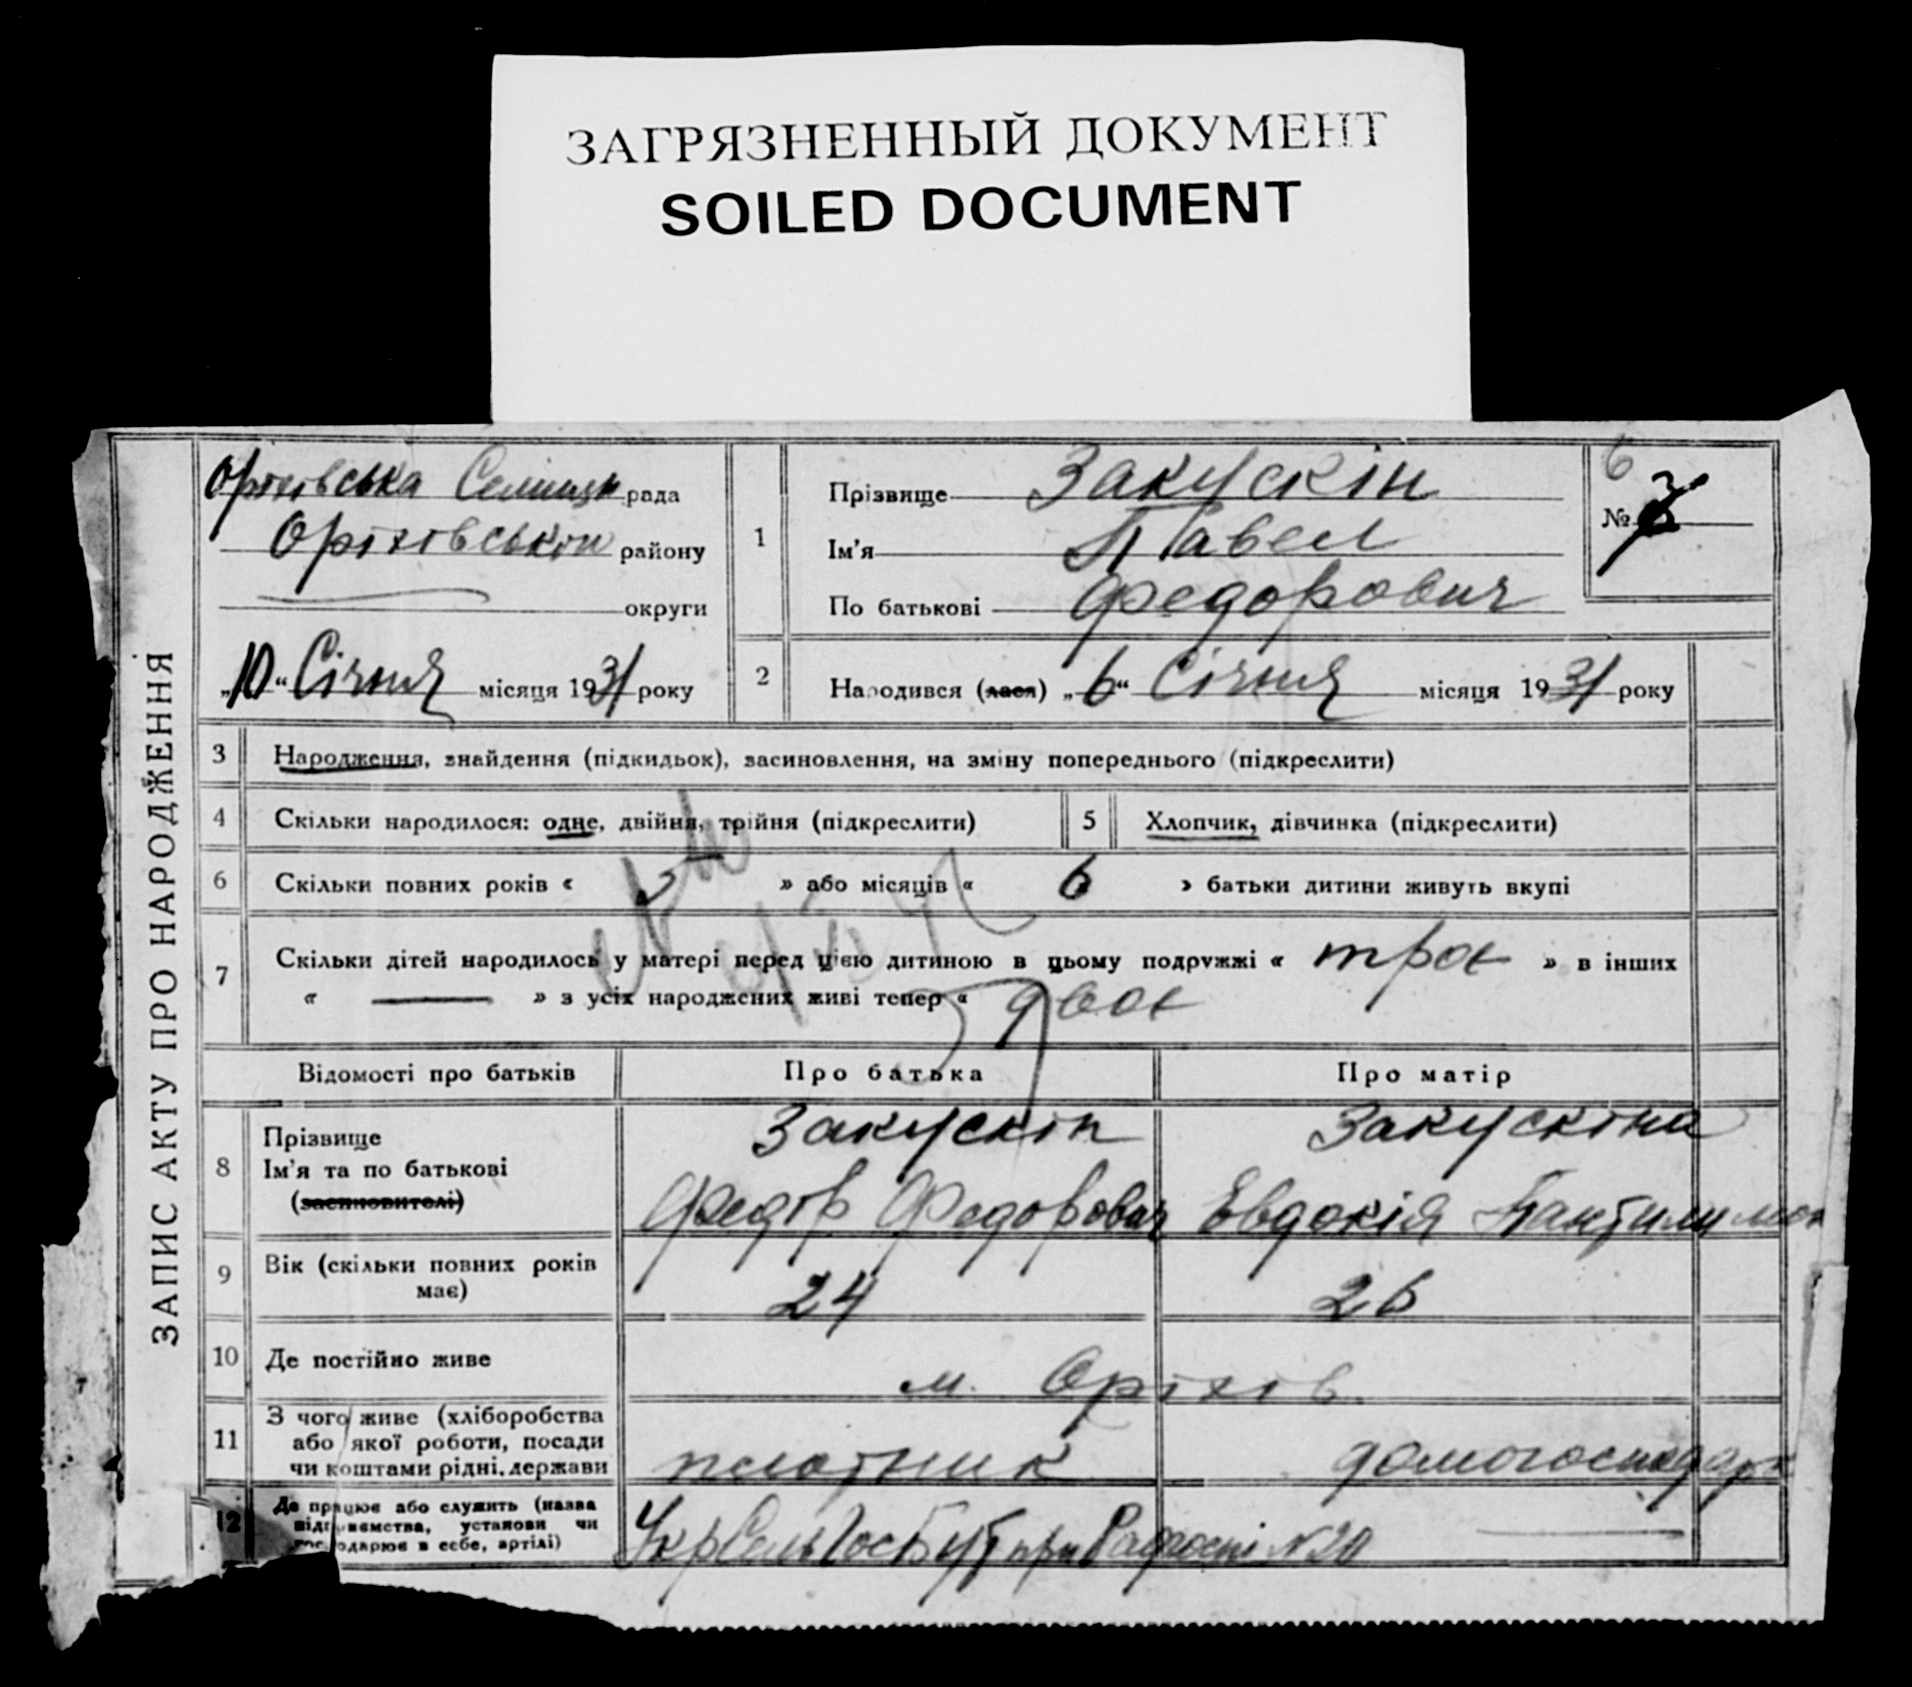 ЗАГРЯЗНЕННЫЙ ДОКУМЕНТ
SOILED DOCUMENT
ЗАПИС АКТУ ПРО НАРОДЖЕННЯ
Оріхівська Селищн рада
Оріхівськои району
округи
„10“ Січня місяця 1931 року
1
Прізвище Закускін
Ім’я Павел
По батькові Федорович
6
№ 3
2
Народився (лася) „6“ Січня місяця 1931 року
3 Народження, знайдення (підкидьок), засиновлення, на зміну попереднього (підкреслити)
4 Скільки народилося: одне, двійня, трійня (підкреслити)
5 Хлопчик, дівчинка (підкреслити)
6 Скільки повних років « » або місяців « 6 » батьки дитини живуть вкупі
7 Скільки дітей народилось у матері перед цією дитиною в цьому подружжі « троє » в інших
« — » з усіх народжених живі тепер « двоє
Відомості про батьків Про батька Про матір
8 Прізвище
Ім’я та по батькові
(засиновителі)
Закускін
Федір Федорович
Закускіна
Евдокія Пантилимон
9 Вік (скільки повних років
має)
24 26
10 Де постійно живе м. Оріхів.
11 З чого живе (хліборобства
або якої роботи, посади
чи коштами рідні, держави
плотник домогосподарк
12 Де працює або служить (назва
підприємства, установи чи
господарює в себе, артілі)
УкрСельГосБуд при Радгоспі №20